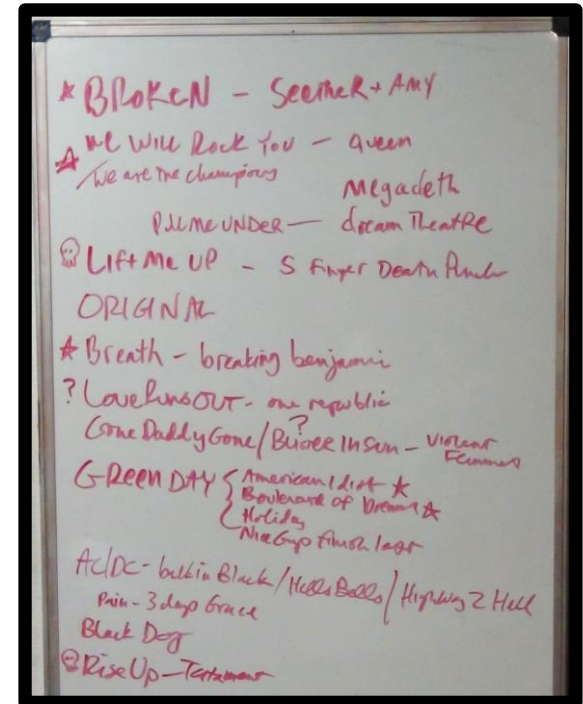 BROKEN - SeetheR + AMY
We Will Rock You - Queen
/We are the champions
Megadeth
Pull Me UNDER — dream TheatRe
LIFt Me UP - 5 Finger Death Punch
ORIGINAL
Breath - breaking benjamin
? Love Runs OUT - one republic
?
Gone Daddy Gone / Blister In Sun - Violent
Femmes
GReen DAY { American Idiot
Boulevard of Dreams
Holiday
Nice Guys finish last
AC/DC - back in Black / Hells Bells / Highway 2 Hell
Pain - 3 days Grace
Black Dog
Rise Up - Testament